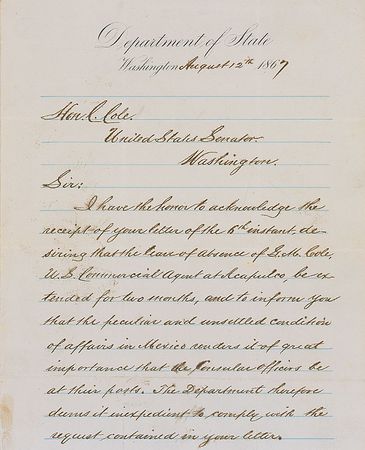 Department of State
Washington August 12th 1867
Hon. C. Cole.
United States Senator.
Washington.
Sir:
I have the honor to acknowledge the
receipt of your letter of the 6th instant, de
siring that the leave of absence of G. M. Cole,
U. S. Commercial Agent at Acapulco, be ex
tended for two months, and to inform you
that the peculiar and unsettled condition
of affairs in Mexico renders it of great
importance that the Consular officers be
at their posts. The Department therefore
deems it inexpedient to comply with the
request contained in your letter.